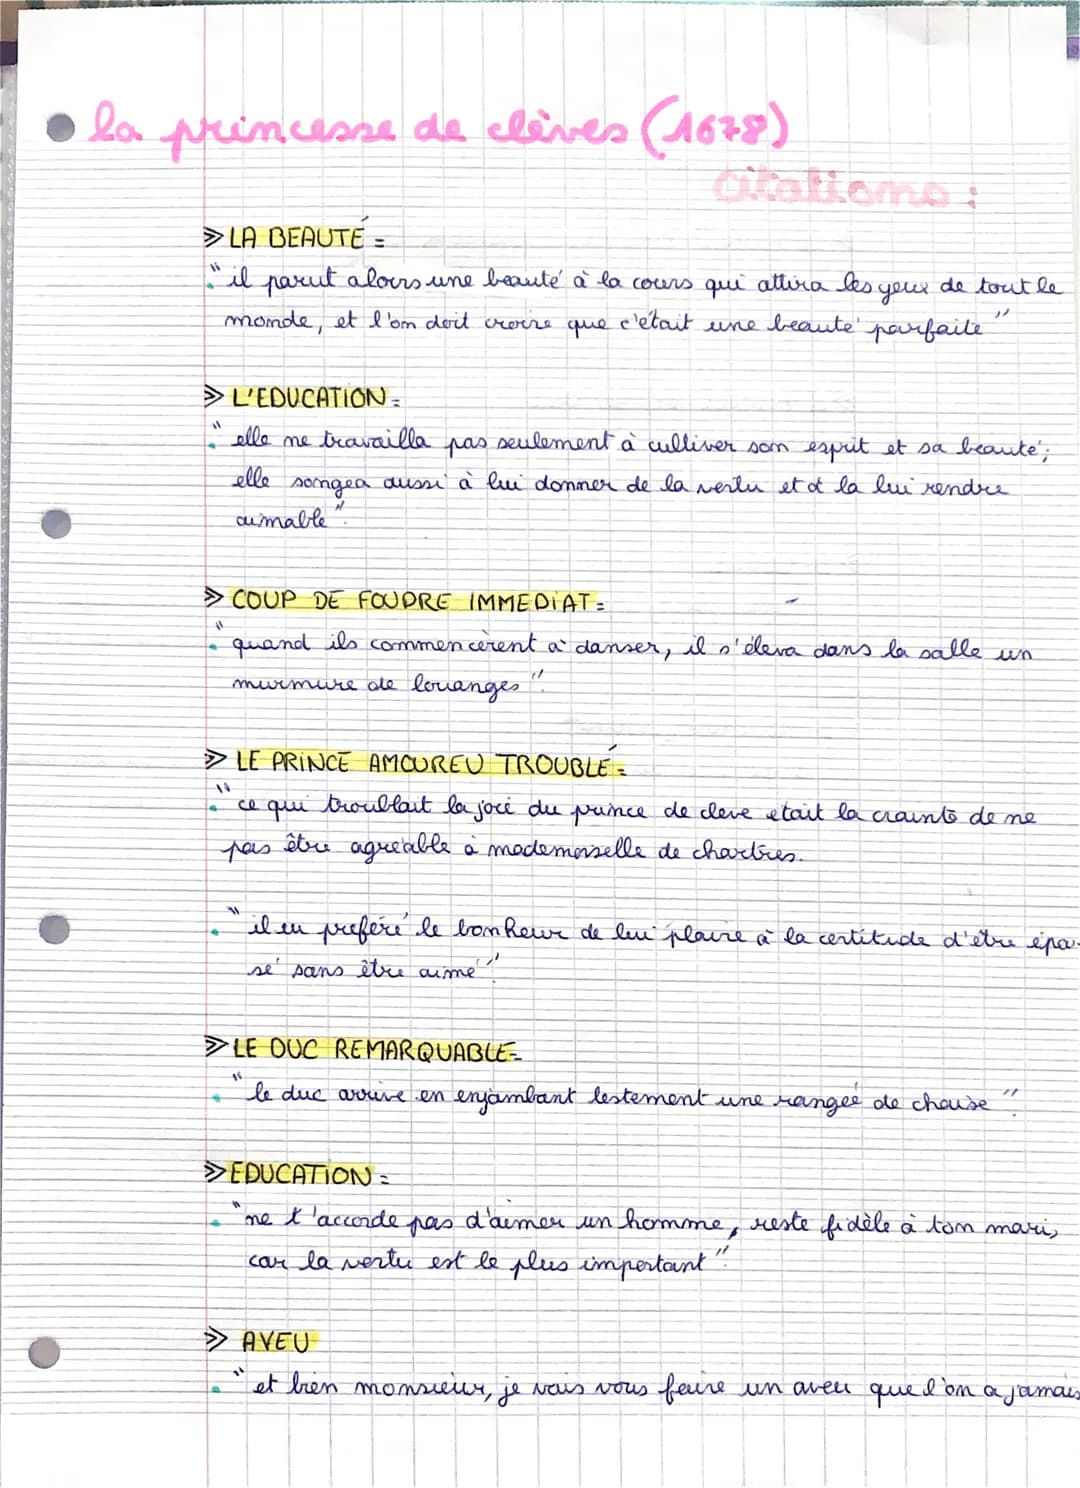 la princesse de clèves (1678)
citations :
» LA BEAUTÉ =
"il parut alors une beauté à la cours qui attira les yeux de tout le
monde, et l'on doit croire que c'était une beauté parfaite"
» L'EDUCATION =
"elle ne travailla pas seulement à cultiver son esprit et sa beauté;
elle songea aussi à lui donner de la vertu et à la lui rendre
aimable".
» COUP DE FOUDRE IMMEDIAT =
"quand ils commencèrent à danser, il s'éleva dans la salle un
murmure de louanges".
» LE PRINCE AMOUREU TROUBLÉ =
"ce qui troublait la joie du prince de cleve etait la crainte de ne
pas être agréable à mademoiselle de chartres.
"il eu preferé le bonheur de lui plaire à la certitude d'être épou-
sé sans être aimé".
» LE DUC REMARQUABLE =
"le duc arrive en enjambant lestement une rangée de chaise".
» EDUCATION =
"ne t'accorde pas d'aimer un homme, reste fidèle à ton mari,
car la vertu est le plus important".
» AVEU
"et bien monsieur, je vais vous faire un aveu que l'on a jamais